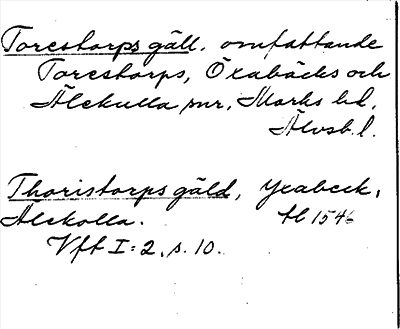 Torestorps gäll. omfattande
Torestorps, Öxabäcks och
Älekulla snr, Marks hd,
Älvsb. l.
Thoristorps gäld, Yxabeck,
Älekolla. tl 1546
Vft I:2, s. 10.